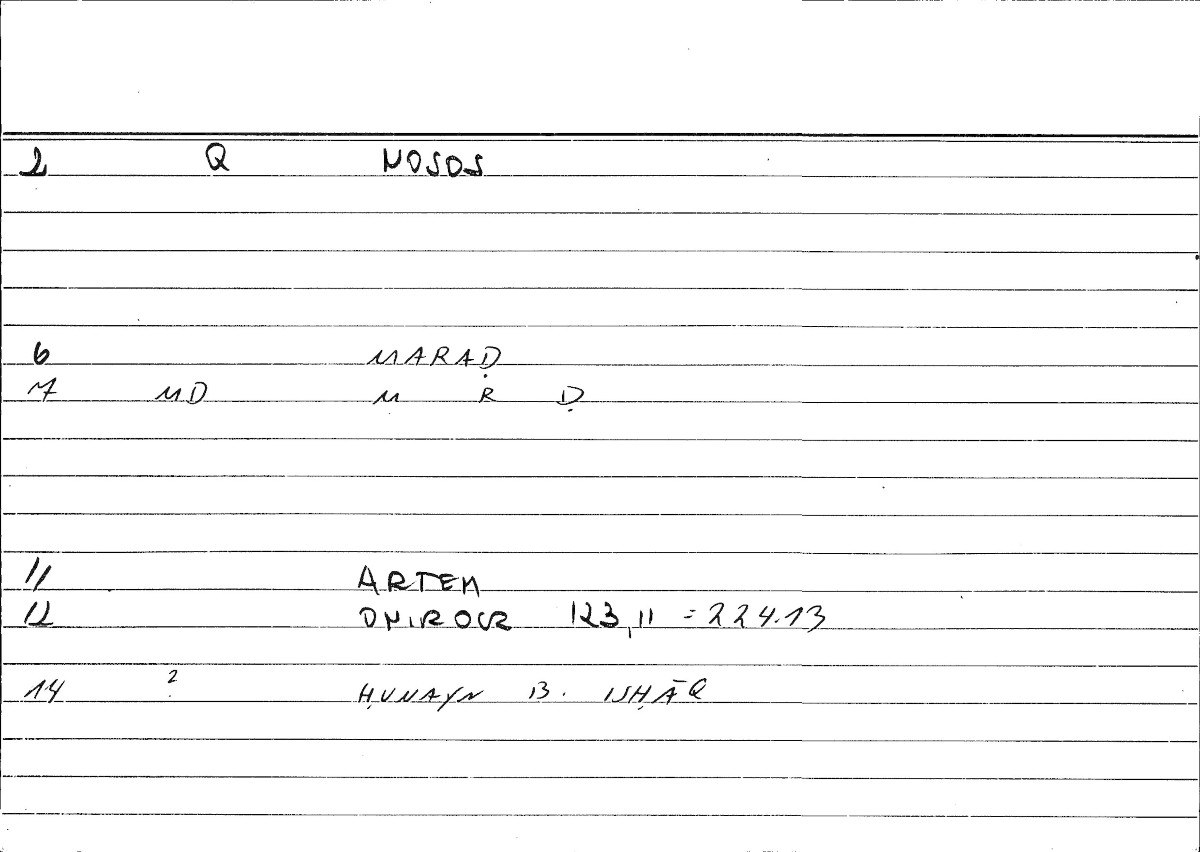 2 Q NOSOS
6 MARAḌ
7 MD M R Ḍ
11 ARTEM
12 ONIROCR 123,11 = 224.13
14 ? ḤUNAYN B. ISḤĀQ